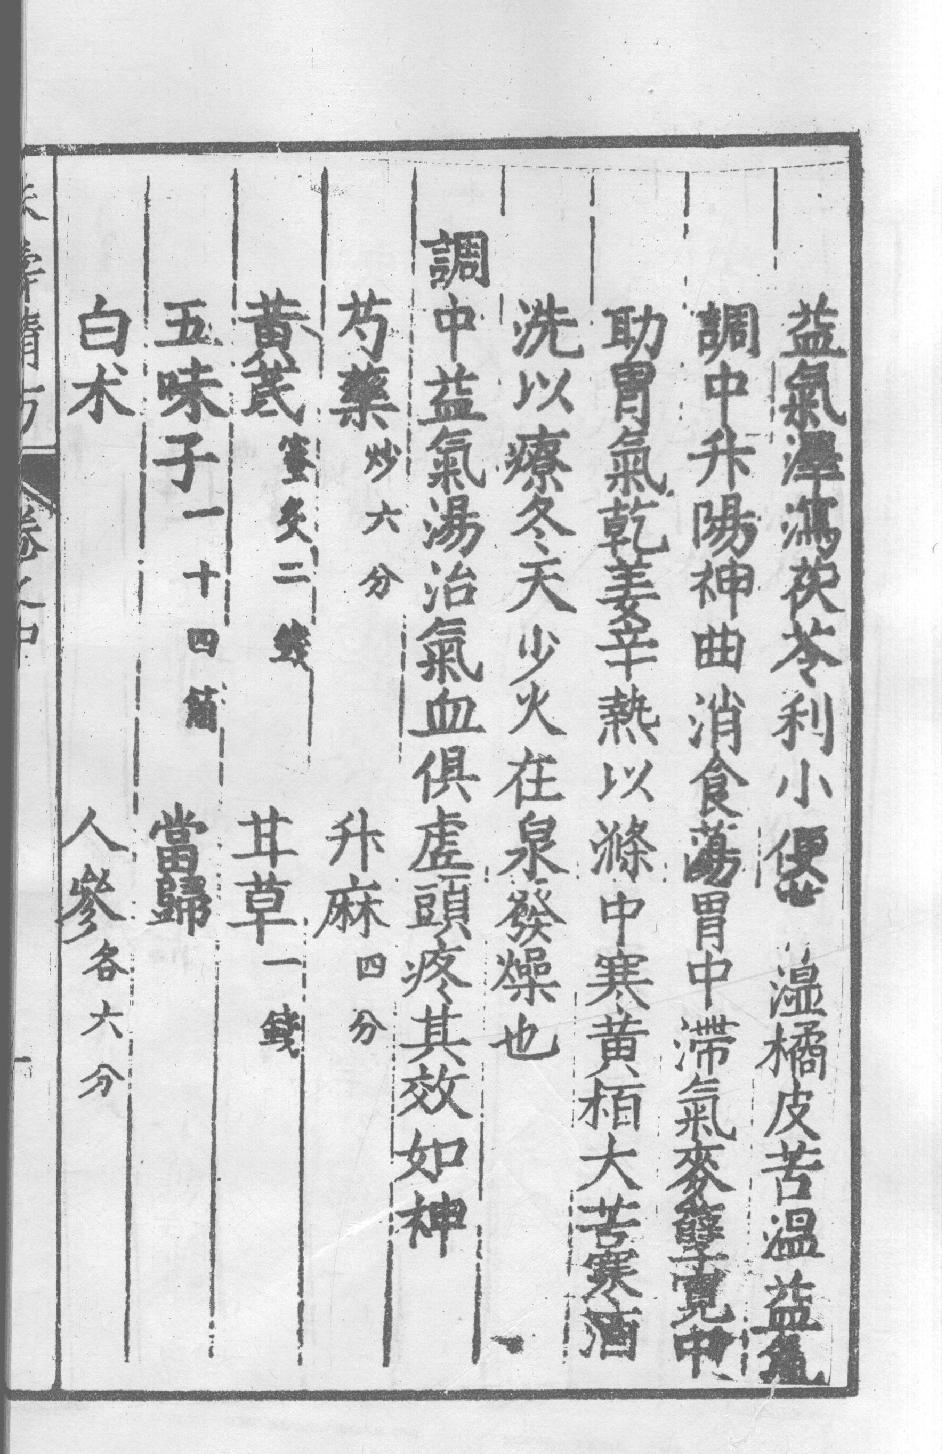 益氣澤瀉茯苓利小便 溫橘皮苦溫益氣
調中升陽神曲消食蕩胃中滯氣麥孽寬中
助胃氣乾姜辛熱以滌中寒黄栢大苦寒酒
洗以療冬天少火在泉發燥也
調中益氣湯治氣血俱虚頭疼其效如神
芍藥炒六分 升麻四分
黄茋蜜炙二錢 甘草一錢
五味子一十四箇 當歸
白术 人參各六分
卷之中